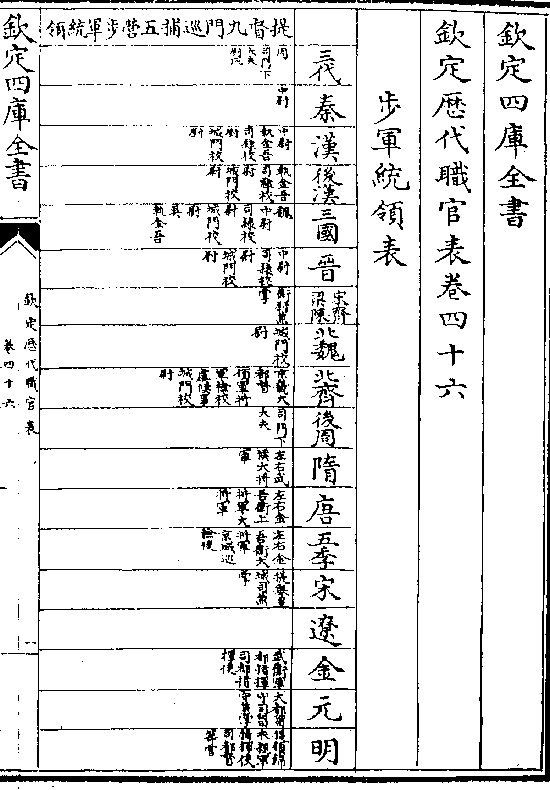 欽定四庫全書
欽定歷代職官表卷四十六
步軍統領表
提督九門巡捕五營步軍統領
三代
周
司門下
大夫
秦
中尉
漢
中尉
執金吾
司隸校
尉
城門校
尉
後漢
執金吾
司隸校
尉
城門校
尉
三國
魏
中尉
司隸校
尉
城門校
尉
吳
執金吾
晉
中尉
司隸校
尉
城門校
尉
宋齊
梁陳
北魏
城門校
尉
北齊
京畿大
都督
城門校
尉
後周
司門下
大夫
隋
左右武
候大將
軍
唐
左右金
吾衛上
將軍大
將軍
五季
左右金
吾衛大
將軍
京城巡
檢使
宋
遼
金
武衛軍
都指揮
司都指
揮使
元
大都留
守司留
明
欽定四庫全書
欽定歷代職官表
卷四十六
一